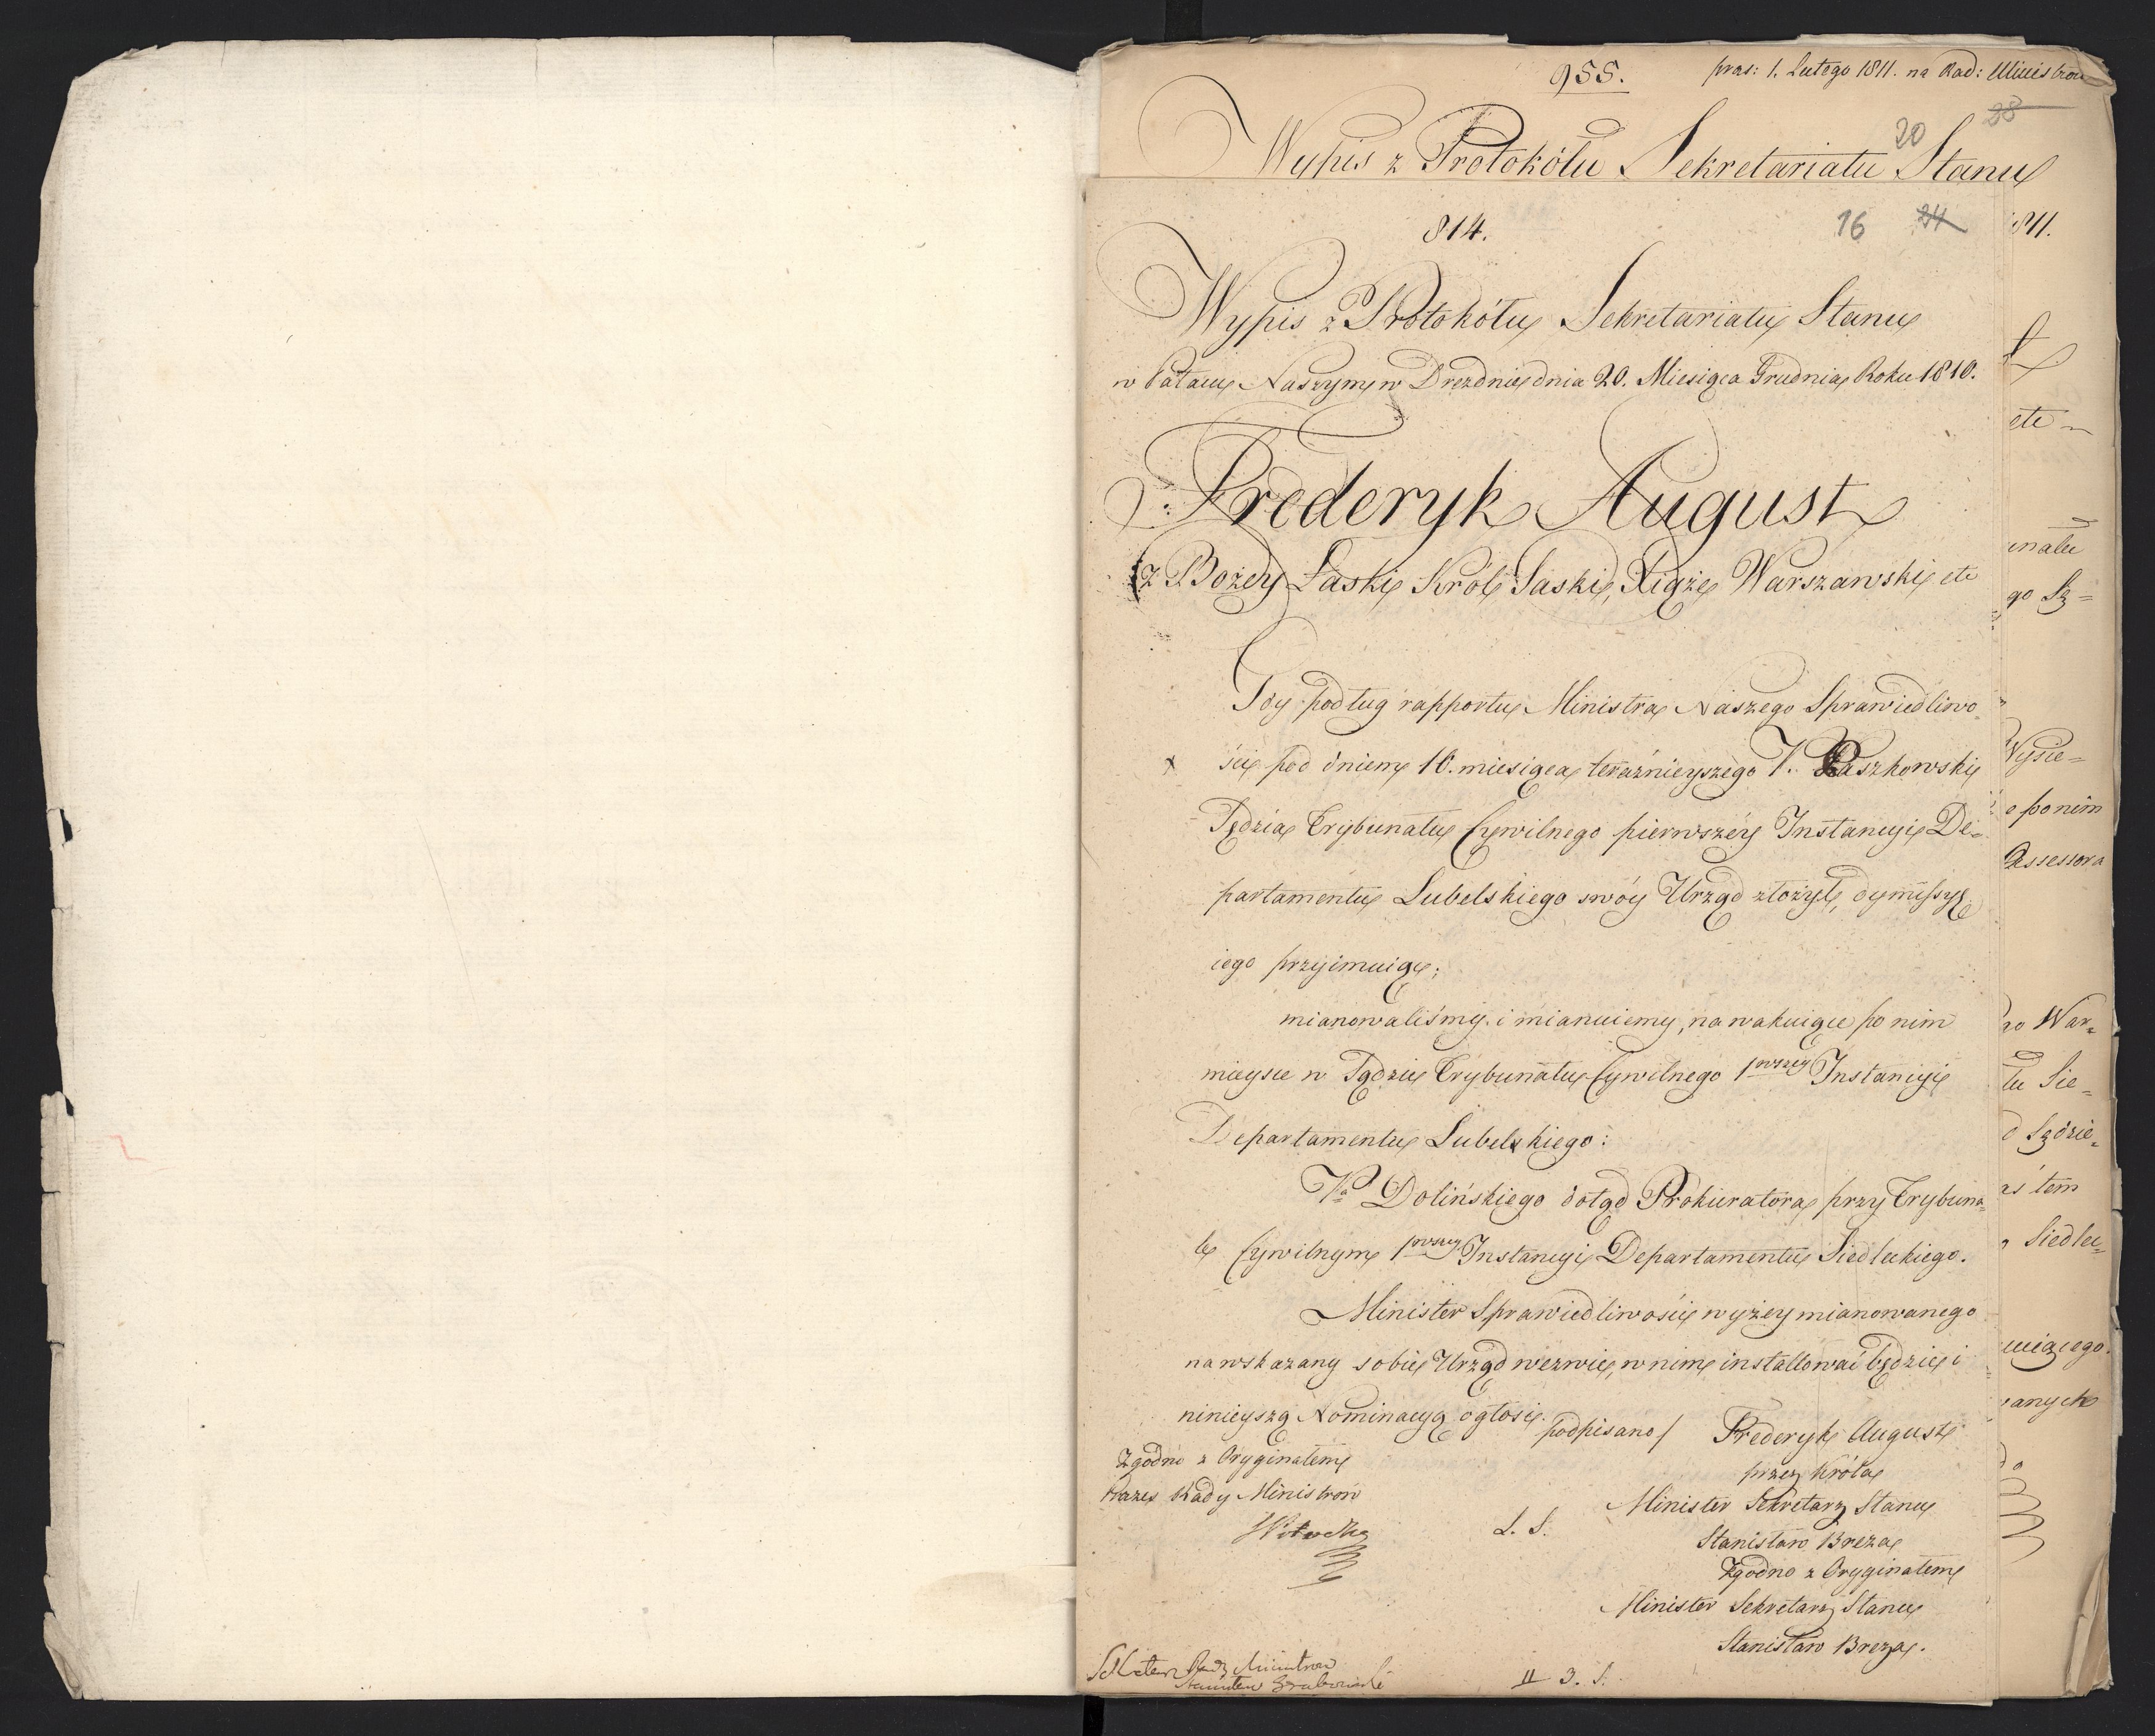 955. pras: 1. Lutego 1811. na Rad: Ministrów
28
20
Wypis z Protokółu Sekretariatu Stanu
814. 16 24
Wypis z Protokółu Sekretariatu Stanu
w Pałacu Naszym w Dreznie dnia 20. Miesiąca Grudnia Roku 1810.
Frederyk August
z Bożey Łaski Król Saski, Xiąże Warszawski etc
Gdy podług rapportu Ministra Naszego Sprawiedliwo
ści pod dniem 10. miesiąca teraźnieyszego J. Paszkowski
Sędzia Trybunału Cywilnego pierwszéy Instancyi De=
partamentu Lubelskiego swóy Urząd złożył, dymissyę
iego przyimuiąc;
mianowaliśmy i mianuiemy, na wakuiące po nim
mieysce w Sądzie Trybunału Cywilnego 1wszey Instancyi
Departamentu Lubelskiego:
Jo Dolińskiego dotąd Prokuratora przy Trybuna=
le Cywilnym 1wszey Instancyi Departamentu Siedleckiego.
Minister Sprawiedliwości wyżey mianowanego
na wskazany sobie Urząd wezwie, w nim installować będzie i
ninieyszą Nominacyą ogłosi.
podpisano/ Frederyk August
przez Króla
Minister Sekretarz Stanu
L. S.
Stanisław Breza
Zgodno z Oryginałem
Minister Sekretarz Stanu
Stanisław Breza.
Zgodno z Oryginałem
Prezes Rady Ministrów
SPotocki
Sekretarz Rady Ministrów
Stanisław Grabowski
II 3. S.
811.
etc
unalu
go Sę=
Wysie=
o ponim
Assessora
go War=
łu Sie=
d Sędzie=
aś tem
Siedlec=
uiącego.
wanych
do